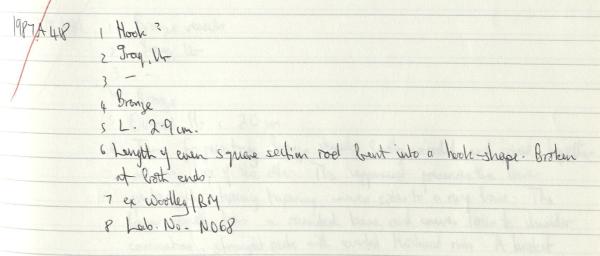 1987A418 1 Hook ?
2 Iraq, Ur
3 —
4 Bronze
5 L. 2.9 cm.
6 Length of even square section rod bent into a hook-shape. Broken
at both ends.
7 ex Woolley/BM
8 Lab. No. N068